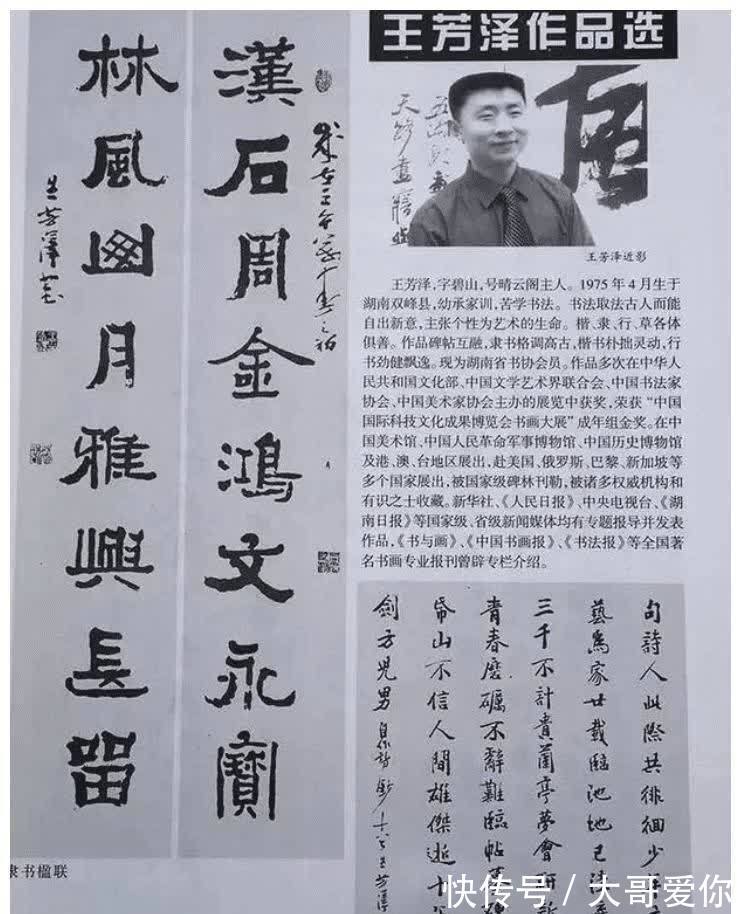 王芳泽作品选
漢石周金鴻文永寶
林風幽月雅興長留
王芳澤
隶书楹联
王芳泽近影
王芳泽,字碧山,号晴云阁主人。1975年4月生于
湖南双峰县,幼承家训,苦学书法。书法取法古人而能
自出新意,主张个性为艺术的生命。楷、隶、行、草各体
俱善。作品碑帖互融,隶书格调高古,楷书朴拙灵动,行
书劲健飘逸。现为湖南省书协会员。作品多次在中华人
民共和国文化部、中国文学艺术界联合会、中国书法家
协会、中国美术家协会主办的展览中获奖,荣获“中国
国际科技文化成果博览会书画大展”成年组金奖。在中
国美术馆、中国人民革命军事博物馆、中国历史博物馆
及港、澳、台地区展出,赴美国、俄罗斯、巴黎、新加坡等
多个国家展出,被国家级碑林刊勒,被诸多权威机构和
有识之士收藏。新华社、《人民日报》、中央电视台、《湖
南日报》等国家级、省级新闻媒体均有专题报导并发表
作品,《书与画》、《中国书画报》、《书法报》等全国著
名书画专业报刊曾辟专栏介绍。
句詩人此際共徘徊少
藝為家廿載臨池地已
三千不計貴蘭亭夢會
青春磨礪不辭難臨帖
帋山不信人間雄傑逝十
劍方兒男
自作詩 王芳澤
快传号 / 大哥爱你